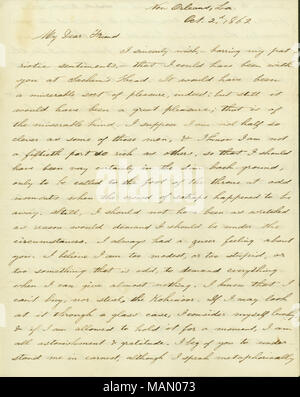 New Orleans, La.
Oct. 2d, 1862
My Dear Friend
I sincerely wish, having my pat
riotic sentiments, that I could have been with
you at Sachem's Head. It would have been
a miserable sort of pleasure, indeed: but still it
would have been a great pleasure, that is of
the miserable kind. I suppose I am not half so
clever as some of those men, & I know I am not
a fiftieth part so rich as others, so that I should
have been very certainly in the dim back ground,
only to be called to the foot of the throne at odd
moments when the crowd of satraps happened to be
away. Still, I should not have been as wretched
as reason would demand I should be under the
circumstances. I always had a queer feeling about
you. I believe I am too modest, or too stupid, or
too something that is odd, to demand everything
when I can give almost nothing. I know that I
can't buy, nor steal, the Kohinoor. If I may look
at it through a glass case, I consider myself lucky
& if I am allowed to hold it for a moment, I am
all astonishment & gratitude. I beg of you to under
stand me in earnest, although I speak metaphorically
alamy
alamy
Image ID: MAN073
www.alamy.com